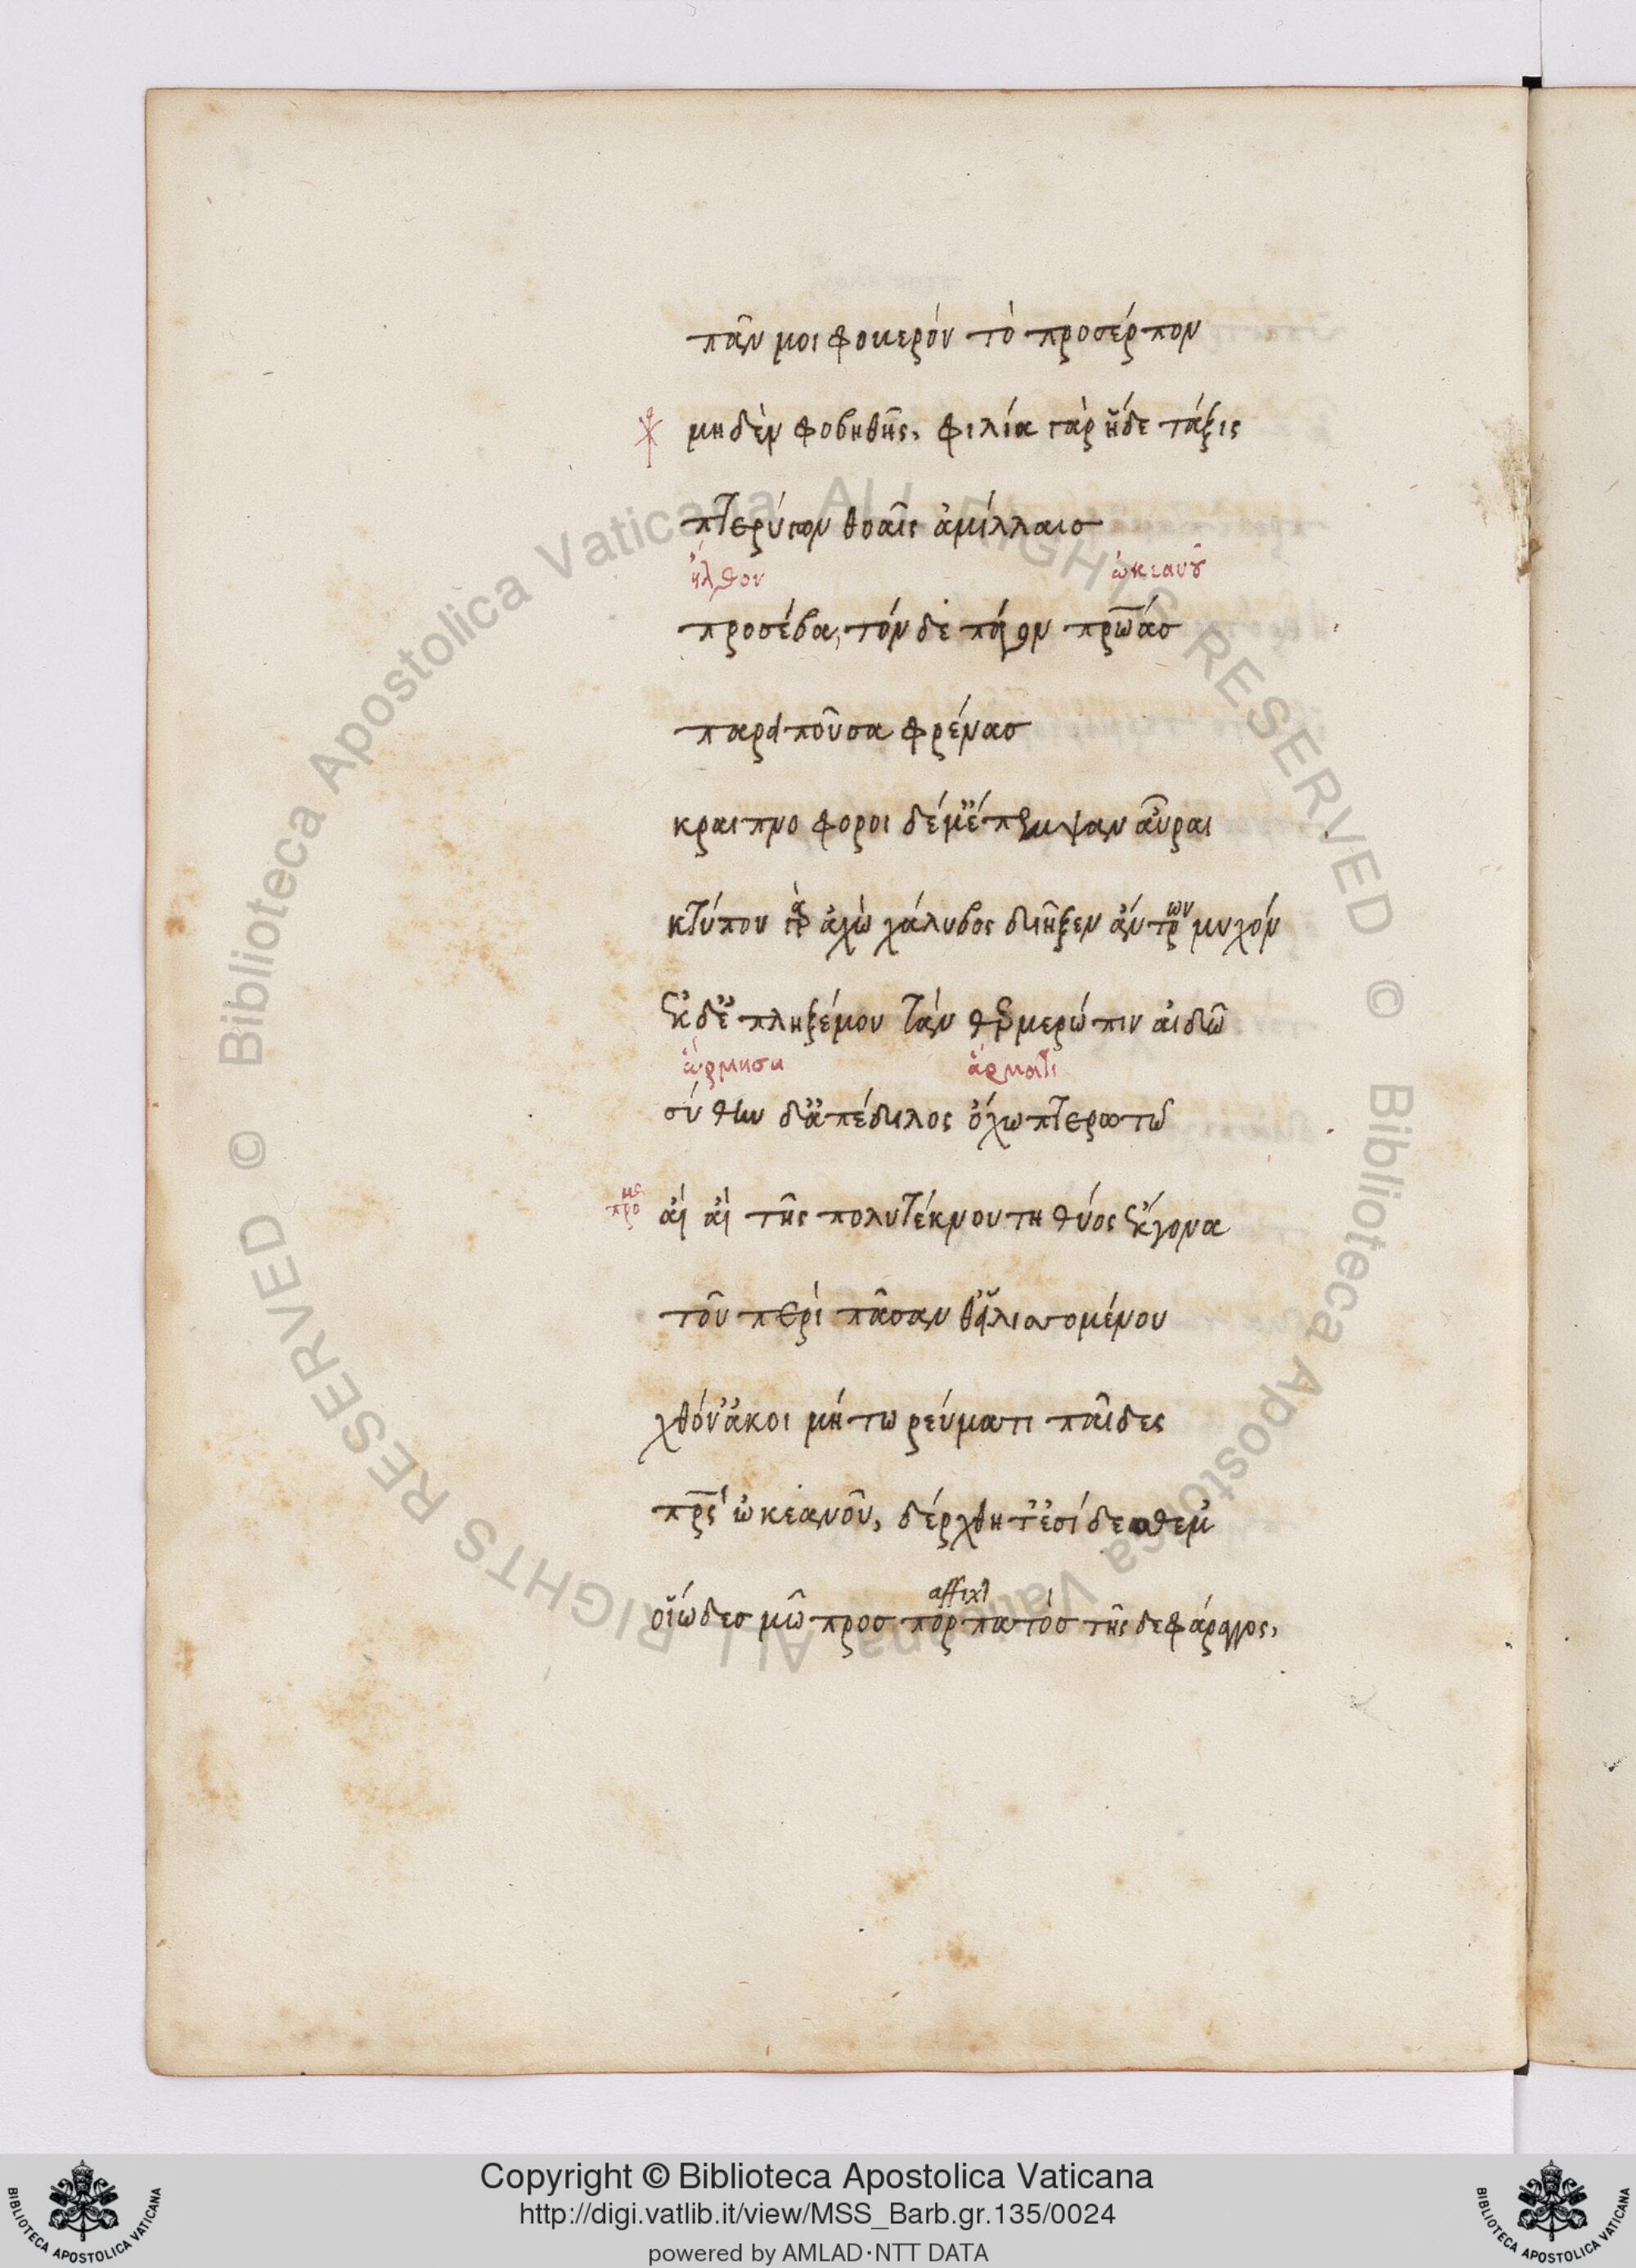 πᾶν μοι φοβερόν τὸ προσέρπον
μηδὲν φοβηθῆς, φιλία γὰρ ἥδε τάξις
πτερύγων θοαῖς ἁμίλλαισ
ἦλθον ὠκεανοῦ
προσέβα, τόν δε πάγον πρώασ
παρειποῦσα φρένασ
κραιπνοφόροι δέ μ' ἔπεμψαν αὖραι
κτύπου γὰρ ἀχὼ χάλυβος διῆξεν ἄντρων μυχόν
ἐκ δ' ἔπληξέ μου τὰν θεμερώπιν αἰδῶ
ὥρμησα ἅρματι
σύθην δ' ἀπέδιλος ὄχω πτερωτῶ
προμς αἴ αἴ τῆς πολυτέκνου τηθύος ἔκγονα
τοῦ περὶ πᾶσαν θ' εἱλισσομένου
χθόν' ἀκοιμήτω ρεύματι παῖδες
πρς ὠκεανοῦ, δέρχθητ' ἐσίδεσθέ μ'
affixi
οἵω δεσμῶ προσπορπατὸσ τῆς δε φάραγγος,
Copyright © Biblioteca Apostolica Vaticana
http://digi.vatlib.it/view/MSS_Barb.gr.135/0024
powered by AMLAD·NTT DATA
BIBLIOTECA APOSTOLICA VATICANA
BIBLIOTECA APOSTOLICA VATICANA
© Biblioteca Apostolica Vaticana ALL RIGHTS RESERVED
© Biblioteca Apostolica Vaticana ALL RIGHTS RESERVED